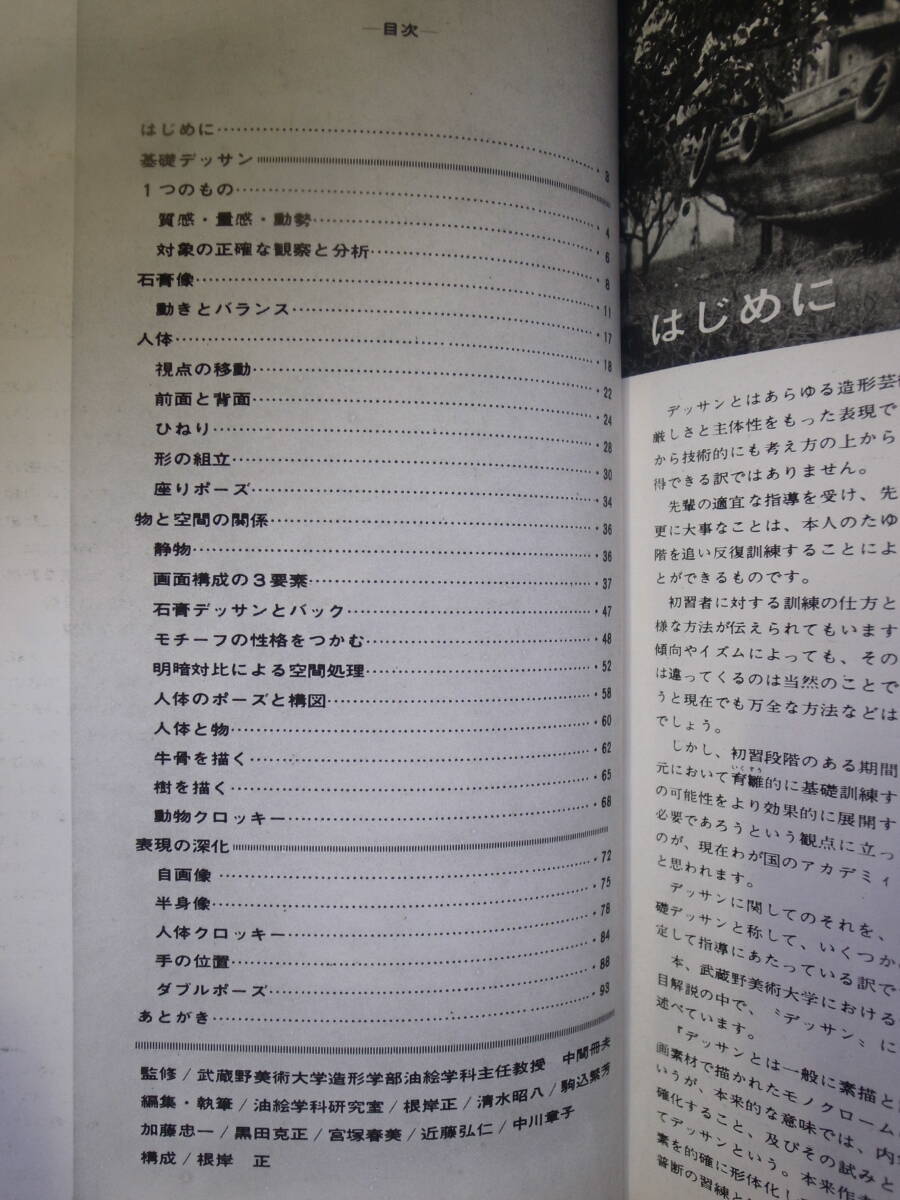 ―目次―
はじめに 3
基礎デッサン
1つのもの 4
質感・量感・動勢 6
対象の正確な観察と分析 8
石膏像 11
動きとバランス 17
人体 18
視点の移動 22
前面と背面 24
ひねり 28
形の組立 30
座りポーズ 34
物と空間の関係 36
静物 36
画面構成の3要素 37
石膏デッサンとバック 47
モチーフの性格をつかむ 48
明暗対比による空間処理 52
人体のポーズと構図 58
人体と物 60
牛骨を描く 62
樹を描く 65
動物クロッキー 68
表現の深化
自画像 72
半身像 75
人体クロッキー 78
手の位置 84
ダブルポーズ 88
あとがき 93
監修/武蔵野美術大学造形学部油絵学科主任教授 中間冊夫
編集・執筆/油絵学科研究室/根岸正/清水昭八/駒込繁芳
加藤忠一/黒田克正/宮塚春美/近藤弘仁/中川章子
構成/根岸 正
はじめに
デッサンとはあらゆる造形芸術
厳しさと主体性をもった表現で
から技術的にも考え方の上から
得できる訳ではありません。
先輩の適宜な指導を受け、先
更に大事なことは、本人のたゆ
階を追い反復訓練することによ
とができるものです。
初習者に対する訓練の仕方と
様な方法が伝えられてもいます
傾向やイズムによっても、その
は違ってくるのは当然のことで
うと現在でも万全な方法などは
でしょう。
しかし、初習段階のある期間
元において育雛的に基礎訓練す
の可能性をより効果的に展開す
必要であろうという観点に立っ
のが、現在わが国のアカデミィ
と思われます。
デッサンに関してのそれを、
礎デッサンと称して、いくつか
定して指導にあたっている訳で
本、武蔵野美術大学における
目解説の中で、〝デッサン〟に
述べています。
『デッサンとは一般に素描と
画素材で描かれたモノクローム
いうが、本来的な意味では、内
確化すること、及びその試みと
てデッサンという。本来作者
素を的確に形体化し
普断の習練と